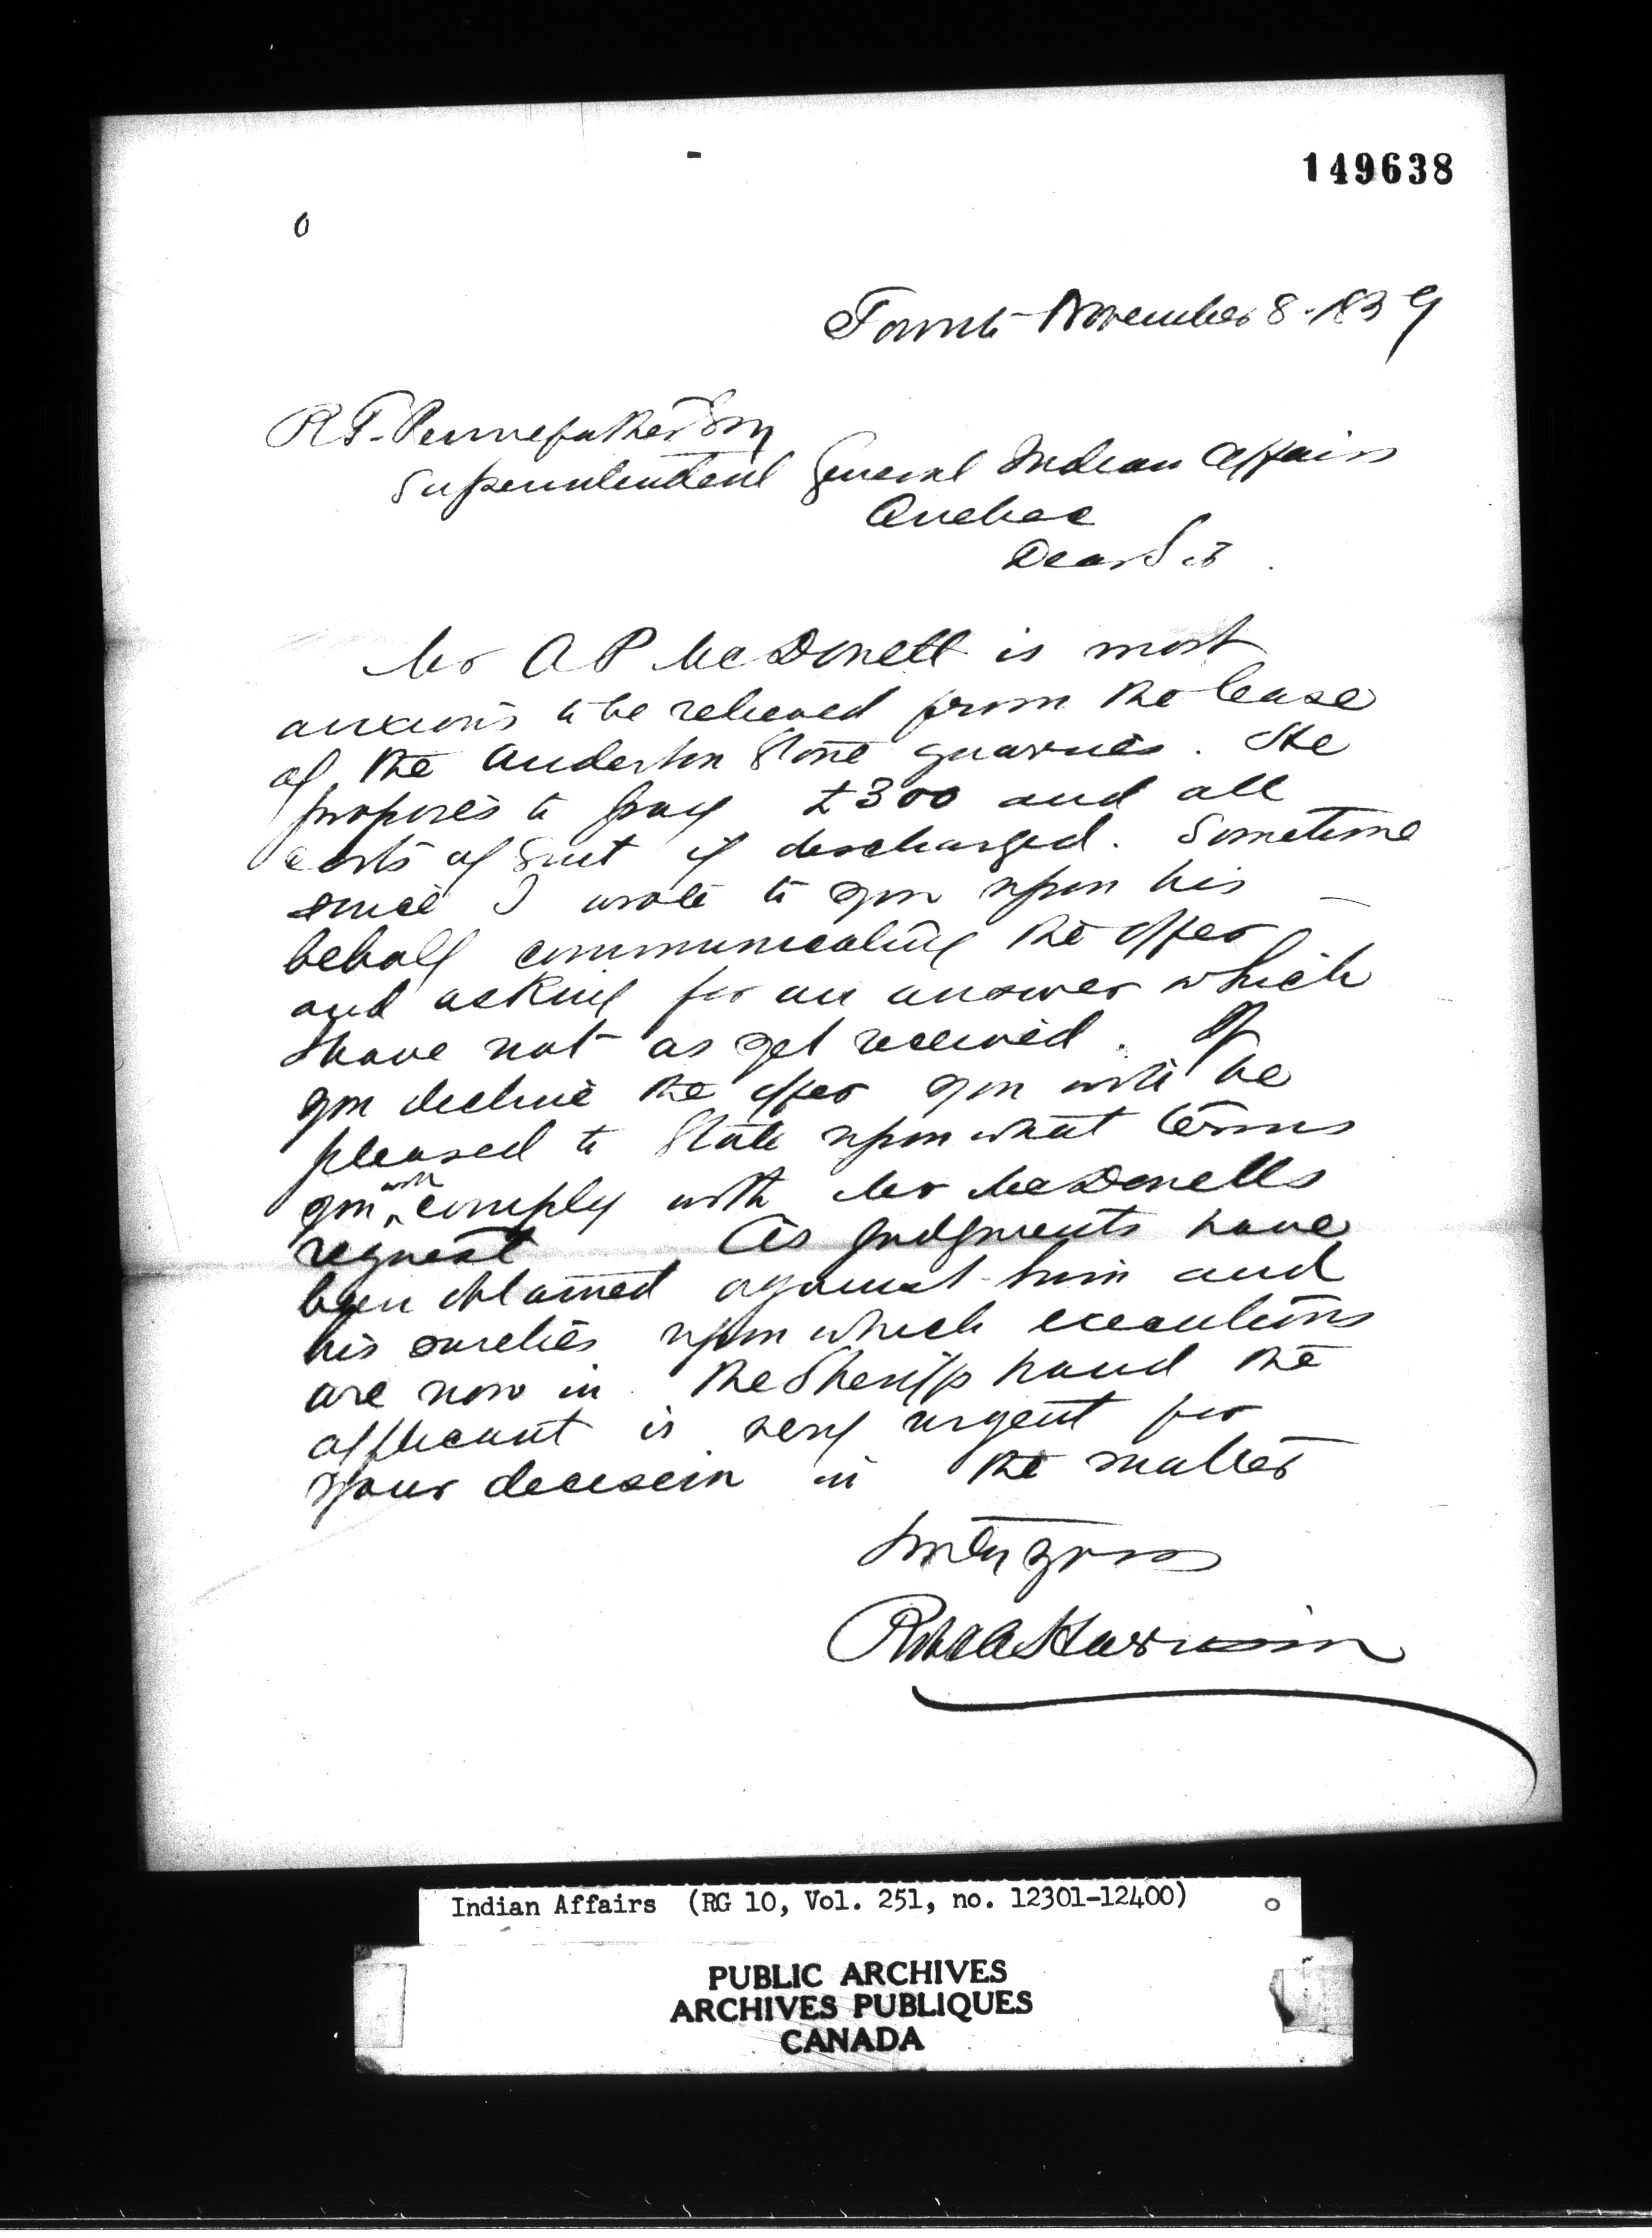 149638
Toronto November 8. 1859
R T. Pennefather Esq
Superintendent General Indian Affairs
Quebec
Dear Sir.
Mr A P McDonell is most
anxious to be relieved from the lease
of the Anderdon Stone quarries. He
proposes to pay £300 and all
costs of Suit if discharged. Sometime
since I wrote to you upon his
behalf communicating the offer
and asking for an answer which
I have not as yet received. If
you decline the offer you will be
pleased to State upon what terms
you will comply with Mr McDonells
request As judgments have
been obtained against him and
his sureties upon which executions
are now in the Sheriffs hand the
applicant is very urgent for
your decision in the matter
Truly yours
Robt A Harrison
Indian Affairs (RG 10, Vol. 251, no. 12301-12400)
PUBLIC ARCHIVES
ARCHIVES PUBLIQUES
CANADA